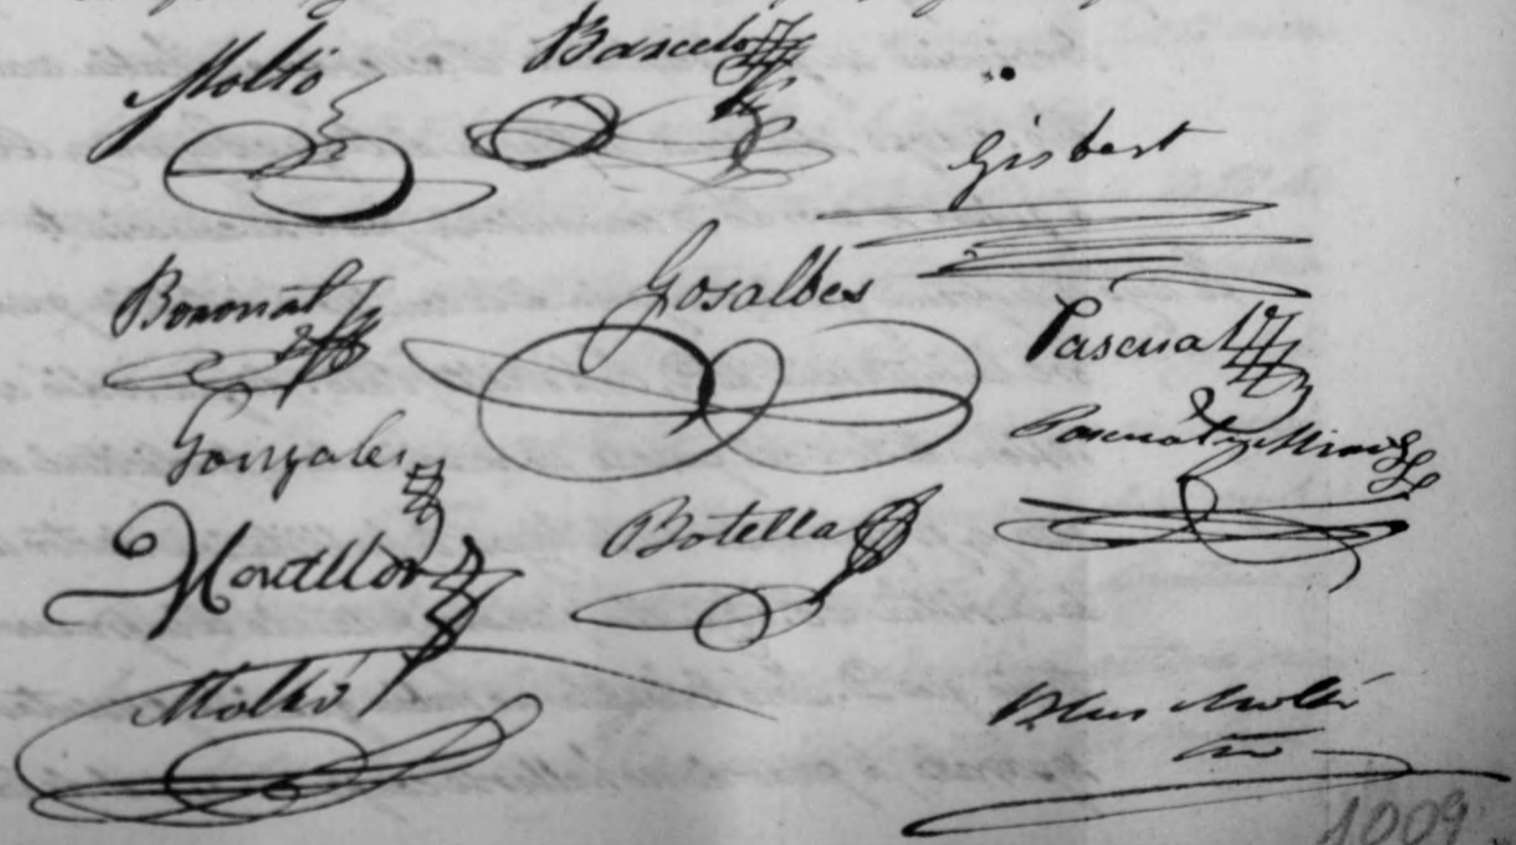 Moltó
Barcelo
Gisbert
Boronat
Gosalbes
Pascual
Gonzales
Pascual y Miro
Botella
Moltó
Blas Moltó
1009